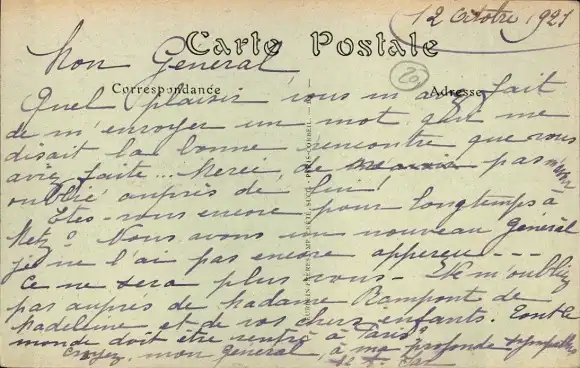 12 Octobre 1921
Carte Postale
Mon General
Correspondance
Adresse
20
Quel plaisir vous m'avez fait
de m'envoyer un mot qui me
disait la bonne rencontre que vous
aviez faite... Merci, de pas m'avoir
oublié auprès de lui!
Etes-vous encore pour longtemps à
Metz? Nous avons un nouveau général
je ne l'ai pas encore apperçu ---
Ce ne sera plus vous - m'oubliez
pas auprès de Madame Rampont de
Madeleine et de vos chers enfants. Tout le
monde doit être rentré à Paris?
Croyez, mon général, à ma profonde sympathie